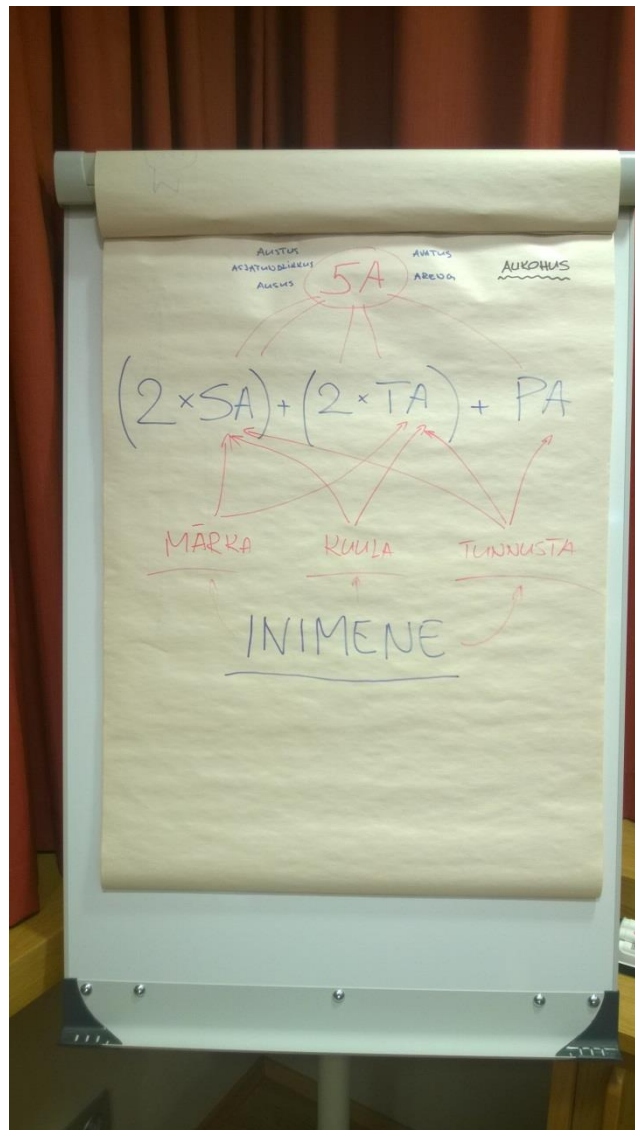 AUSTUS
ASJATUNDLIKKUS
AUSUS
5A
AVATUS
ARENG
AUKOHUS
(2 × SA) + (2 × TA) + PA
MÄRKA KUULA TUNNUSTA
INIMENE